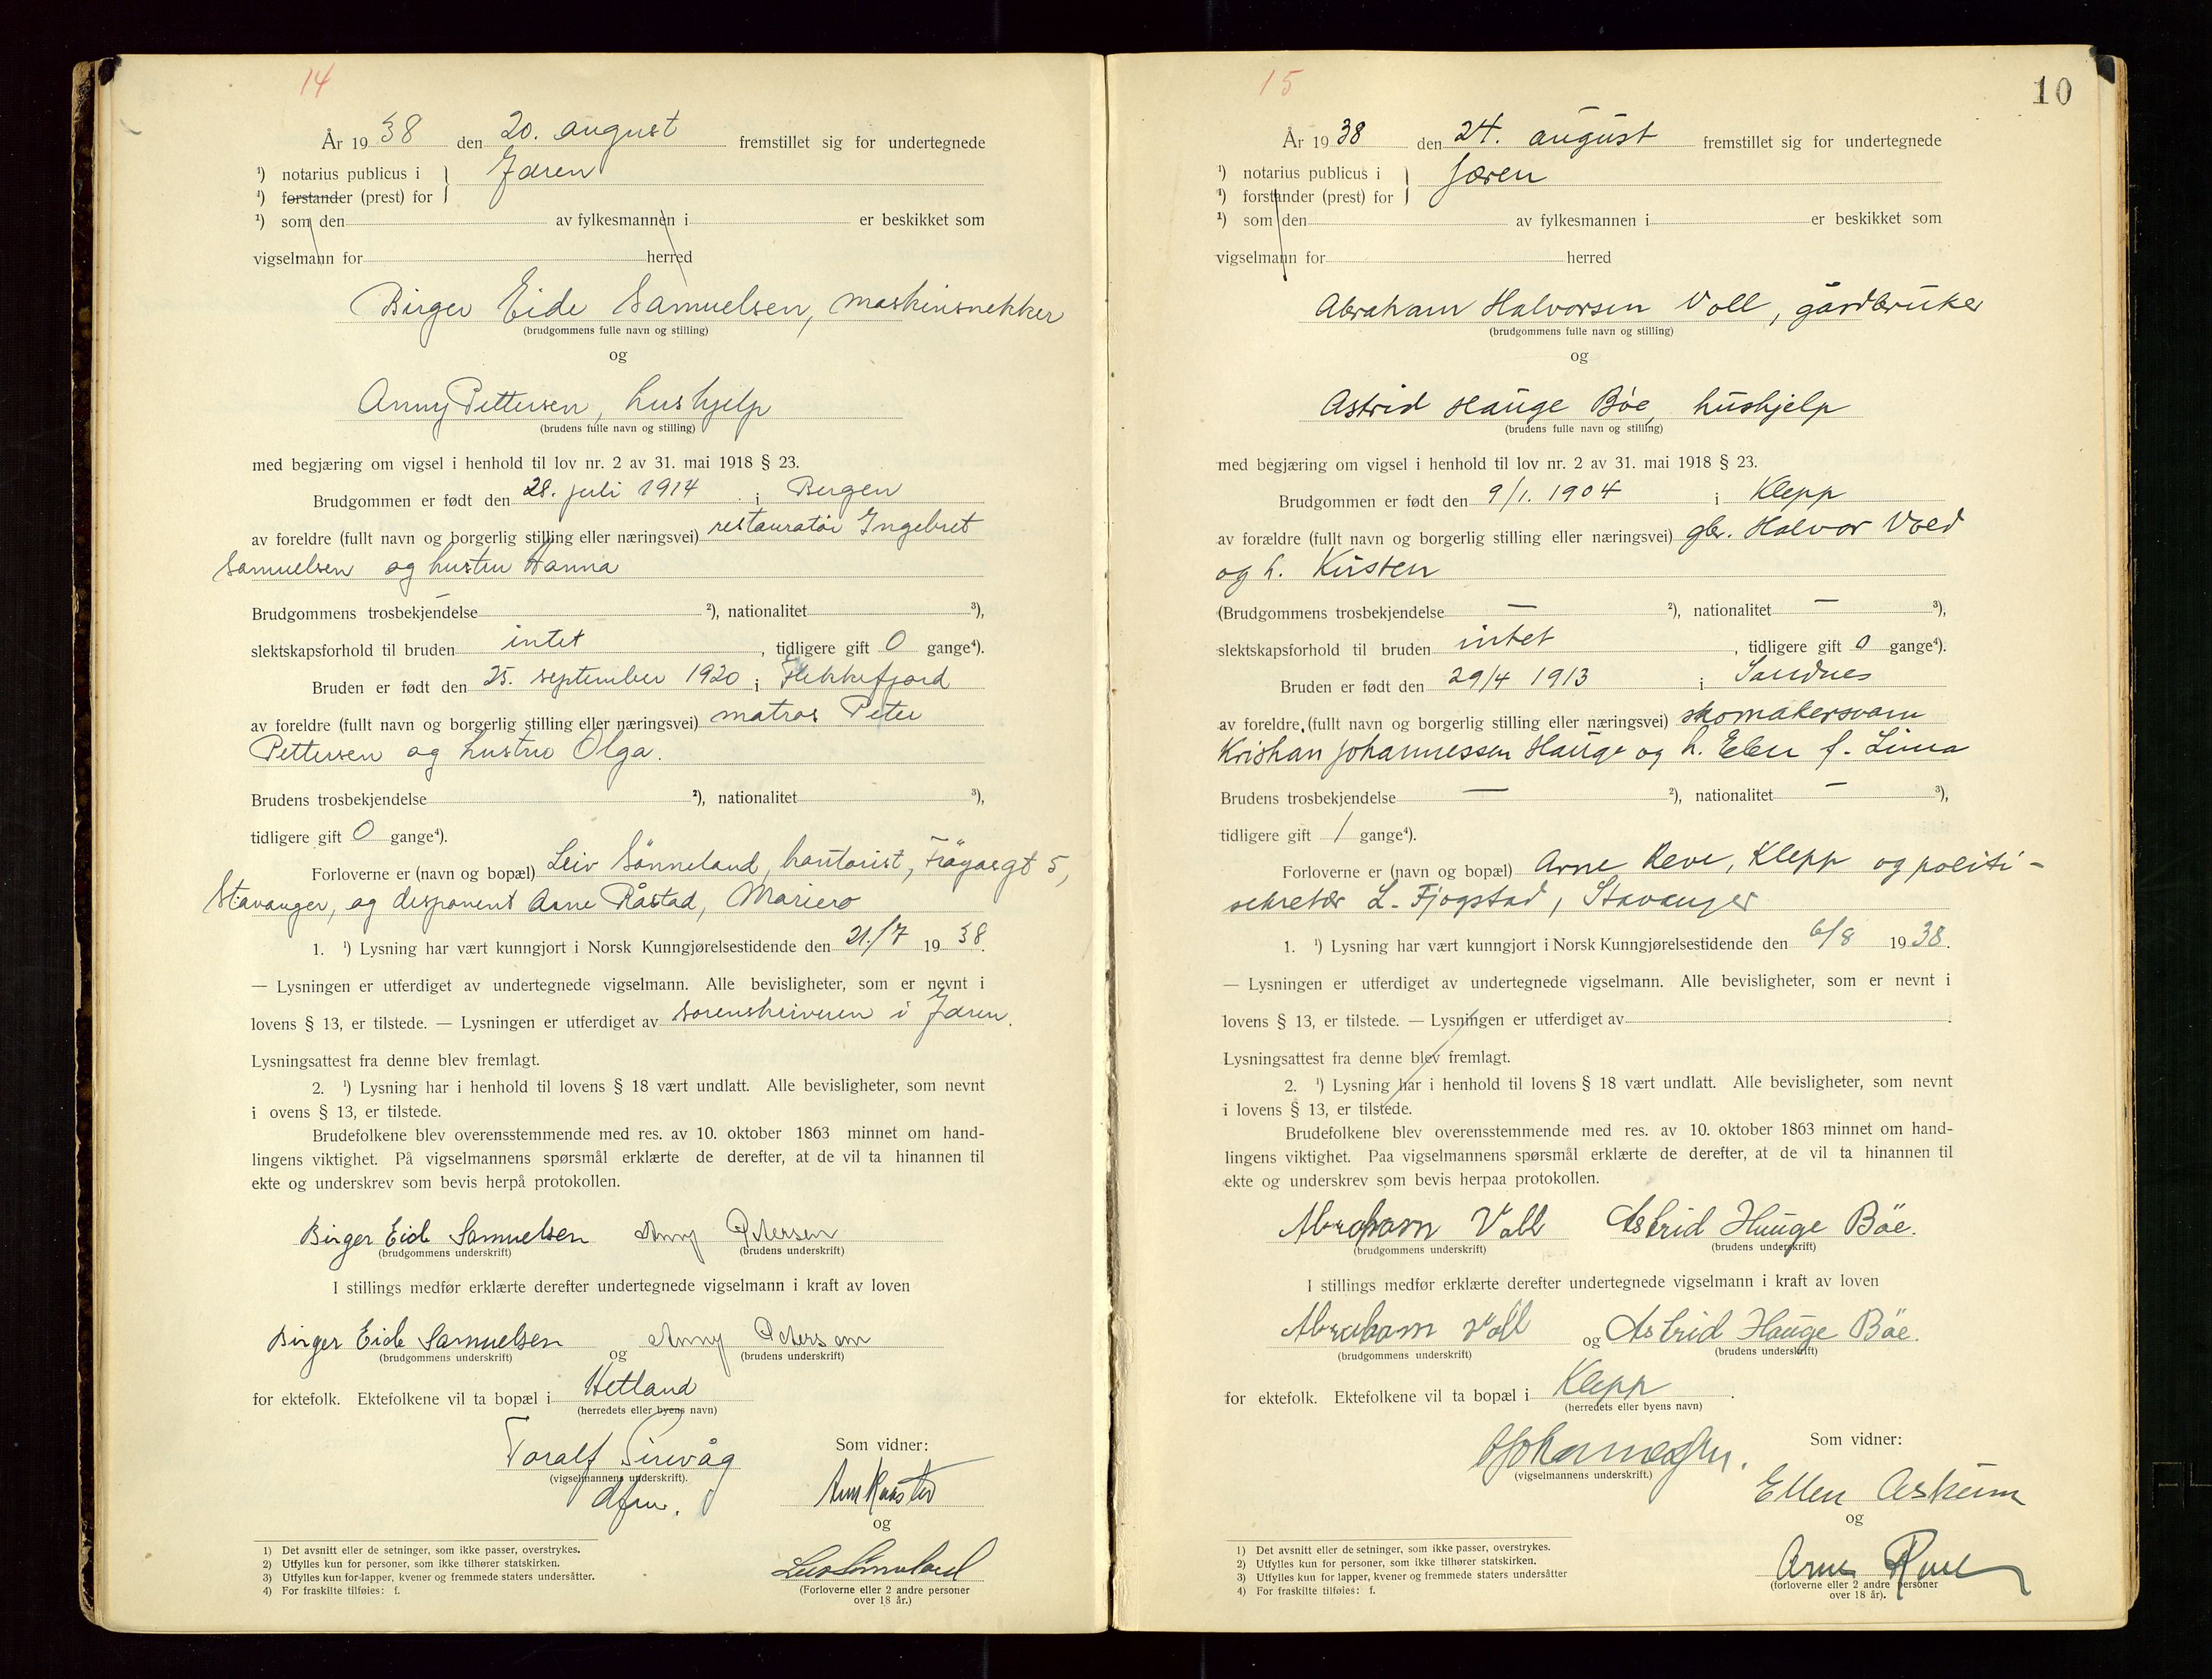 14
År 19 38 den 20. august fremstillet sig for undertegnede
¹) notarius publicus i } Jæren
¹) forstander (prest) for
¹) som den av fylkesmannen i er beskikket som
vigselmann for herred
Birger Eide Samuelsen, maskinsnekker
(brudgommens fulle navn og stilling)
og
Anny Pettersen, hushjelp
(brudens fulle navn og stilling)
med begjæring om vigsel i henhold til lov nr. 2 av 31. mai 1918 § 23.
Brudgommen er født den 28. juli 1914 i Bergen
av foreldre (fullt navn og borgerlig stilling eller næringsvei) restauratør Ingebret
Samuelsen og hustru Hanna
Brudgommens trosbekjendelse — ²), nationalitet ³),
slektskapsforhold til bruden intet, tidligere gift 0 gange⁴).
Bruden er født den 25. september 1920 i Flekkefjord
av foreldre (fullt navn og borgerlig stilling eller næringsvei) matros Peter
Pettersen og hustru Olga.
Brudens trosbekjendelse ²), nationalitet ³),
tidligere gift 0 gange⁴).
Forloverne er (navn og bopæl) Leiv Sønneland, kontorist, Frøyasgt 5,
Stavanger, og disponent Arne Råstad, Mariero
1. ¹) Lysning har vært kunngjort i Norsk Kunngjørelsestidende den 21./7 19 38.
— Lysningen er utferdiget av undertegnede vigselmann. Alle bevisligheter, som er nevnt i
lovens § 13, er tilstede. — Lysningen er utferdiget av sorenskriveren i Jæren.
Lysningsattest fra denne blev fremlagt.
2. ¹) Lysning har i henhold til lovens § 18 vært undlatt. Alle bevisligheter, som nevnt
i ovens § 13, er tilstede.
Brudefolkene blev overensstemmende med res. av 10. oktober 1863 minnet om hand-
lingens viktighet. På vigselmannens spørsmål erklærte de derefter, at de vil ta hinannen til
ekte og underskrev som bevis herpå protokollen.
Birger Eide Samuelsen Anny Petersen
(brudgommens underskrift) (brudens underskrift)
I stillings medfør erklærte derefter undertegnede vigselmann i kraft av loven
Birger Eide Samuelsen og Anny Petersen
(brudgommens underskrift) (brudens underskrift)
for ektefolk. Ektefolkene vil ta bopæl i Hetland
(herredets eller byens navn)
Toralf Sirevåg Som vidner:
(vigselmannens underskrift).
dfm.
og
(Forloverne eller 2 andre personer
over 18 år.)
1) Det avsnitt eller de setninger, som ikke passer, overstrykes.
2) Utfylles kun for personer, som ikke tilhører statskirken.
3) Utfylles kun for lapper, kvener og fremmede staters undersåtter.
4) For fraskilte tilføies: f.
15
10
År 19 38 den 24. august fremstillet sig for undertegnede
¹) notarius publicus i } Jæren
¹) forstander (prest) for
¹) som den av fylkesmannen i er beskikket som
vigselmann for herred
Abraham Halvorsen Voll, gårdbruker
(brudgommens fulle navn og stilling)
og
Astrid Hauge Bøe, hushjelp
(brudens fulle navn og stilling)
med begjæring om vigsel i henhold til lov nr. 2 av 31. mai 1918 § 23.
Brudgommen er født den 9/1. 1904 i Klepp
av forældre (fullt navn og borgerlig stilling eller næringsvei) gbr. Halvor Vold
og h. Kirsten
(Brudgommens trosbekjendelse — ²), nationalitet — ³),
slektskapsforhold til bruden intet, tidligere gift 0 gange⁴).
Bruden er født den 29/4 1913 i Sandnes
av foreldre (fullt navn og borgerlig stilling eller næringsvei) skomakersvenn
Kristian Johannessen Hauge og h. Elen f. Lima
Brudens trosbekjendelse — ²), nationalitet — ³),
tidligere gift 1 gange⁴).
Forloverne er (navn og bopæl) Arne Reve, Klepp og politi-
sekretær L. Fjogstad, Stavanger
1. ¹) Lysning har vært kunngjort i Norsk Kunngjørelsestidende den 6/8 19 38.
— Lysningen er utferdiget av undertegnede vigselmann. Alle bevisligheter, som er nevnt i
lovens § 13, er tilstede. — Lysningen er utferdiget av
Lysningsattest fra denne blev fremlagt.
2. ¹) Lysning har i henhold til lovens § 18 vært undlatt. Alle bevisligheter, som nevnt
i lovens § 13, er tilstede.
Brudefolkene blev overensstemmende med res. av 10. oktober 1863 minnet om hand-
lingens viktighet. Paa vigselmannens spørsmål erklærte de derefter, at de vil ta hinannen til
ekte og underskrev som bevis herpaa protokollen.
Abraham Voll Astrid Hauge Bøe.
(brudgommens underskrift) (brudens underskrift)
I stillings medfør erklærte derefter undertegnede vigselmann i kraft av loven
Abraham Voll og Astrid Hauge Bøe.
(brudgommens underskrift) (brudens underskrift)
for ektefolk. Ektefolkene vil ta bopæl i Klepp.
(herredets eller byens navn)
Som vidner:
(vigselmannens underskrift.)
Ellen Askeim
og
Arne Reve
(forloverne eller 2 andre personer
over 18 år).
1) Det avsnitt eller de setninger, som ikke passer, overstrykes.
2) Utfylles kun for personer, som ikke tilhører statskirken.
3) Utfylles kun for lapper, kvener og fremmede staters undersåtter
4) For fraskilte tilføies: f.